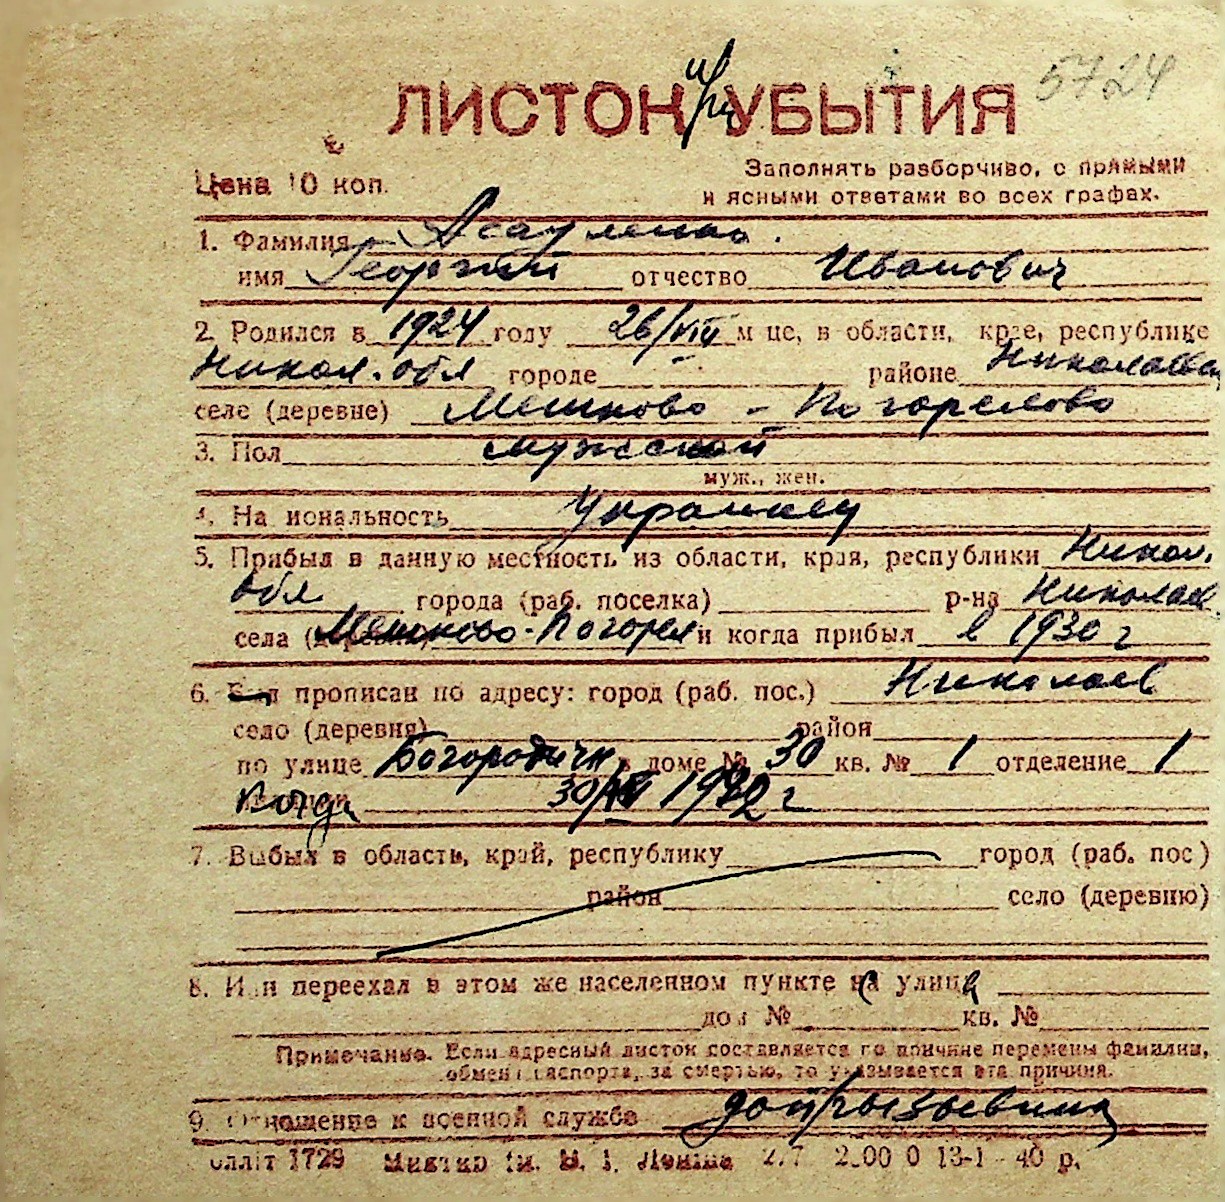 ЛИСТОК УБЫТИЯ 5724
Цена 10 коп.
Заполнять разборчиво, с прямыми
и ясными ответами во всех графах.
1. Фамилия Асауленко.
имя Георгий отчество Иванович
2. Родился в 1924 году 26/VIII м це, в области, крае, республике
Никол. обл городе районе Николаевск
селе (деревне) Мешково - Погорелово
3. Пол мужской
муж., жен.
4. На иональность Украинец
5. Прибыл в данную местность из области, края, республики Никол.
обл города (раб. поселка) р-на Николаев.
села Мешково-Погорел и когда прибыл в 1930 г
6. прописан по адресу: город (раб. пос.) Николаев
село (деревня) район
по улице в доме № 30 кв. № 1 отделение 1
Когда
7. Выбыл в область, край, республику город (раб. пос)
район село (деревню)
8. И и переехал в этом же населенном пункте на улицу
дом № кв. №
Примечание. Если адресный листок составляется по причине перемены фамилии,
обмен паспорта, за смертью, то указывается эта причина.
9. Отношение к военной службе допризывник
олліт 1729 Ленина 2.7 2 00 0 13-1 - 40 р.